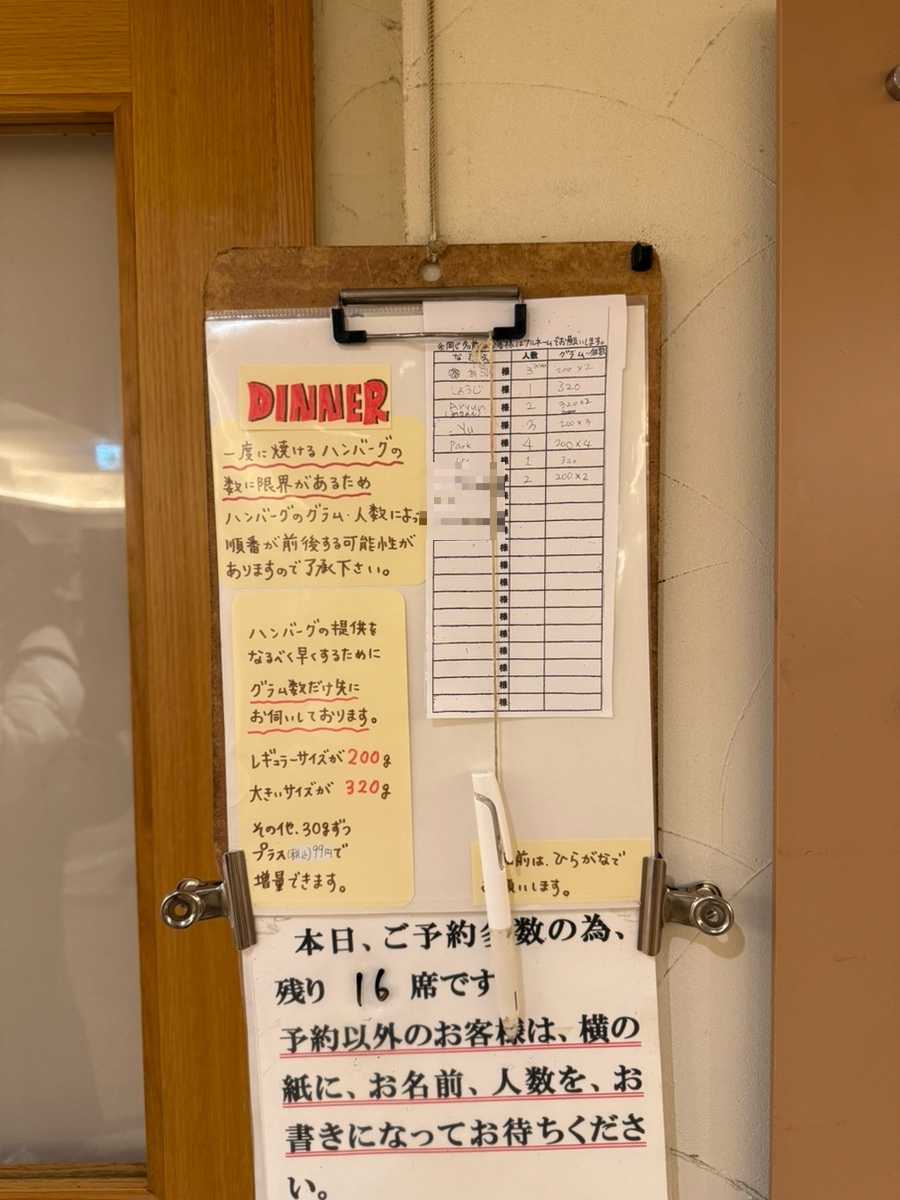 DINNER
一度に焼けるハンバーグの
数に限界があるため
ハンバーグのグラム・人数によっ
順番が前後する可能性が
ありますので了承下さい。
ハンバーグの提供を
なるべく早くするために
グラム数だけ先に
お伺いしております。
レギュラーサイズが200g
大きいサイズが 320g
その他、30gずつ
プラス(税込)99円で
増量できます。
※同じ名前の 客様はフルネームでお願いします。
なまえ 人数 グラム・個数
様 3 200×2
しょうじ 様 1 320
様 2 320×2
Yu 様 3 200×3
Park 様 4 200×4
様 1 320
様 2 200×2
様
様
様
様
様
様
様
様
様
様
様
様
様
前は、ひらがなで
願いします。
本日、ご予約多数の為、
残り 16 席です
予約以外のお客様は、横の
紙に、お名前、人数を、お
書きになってお待ちくださ
い。